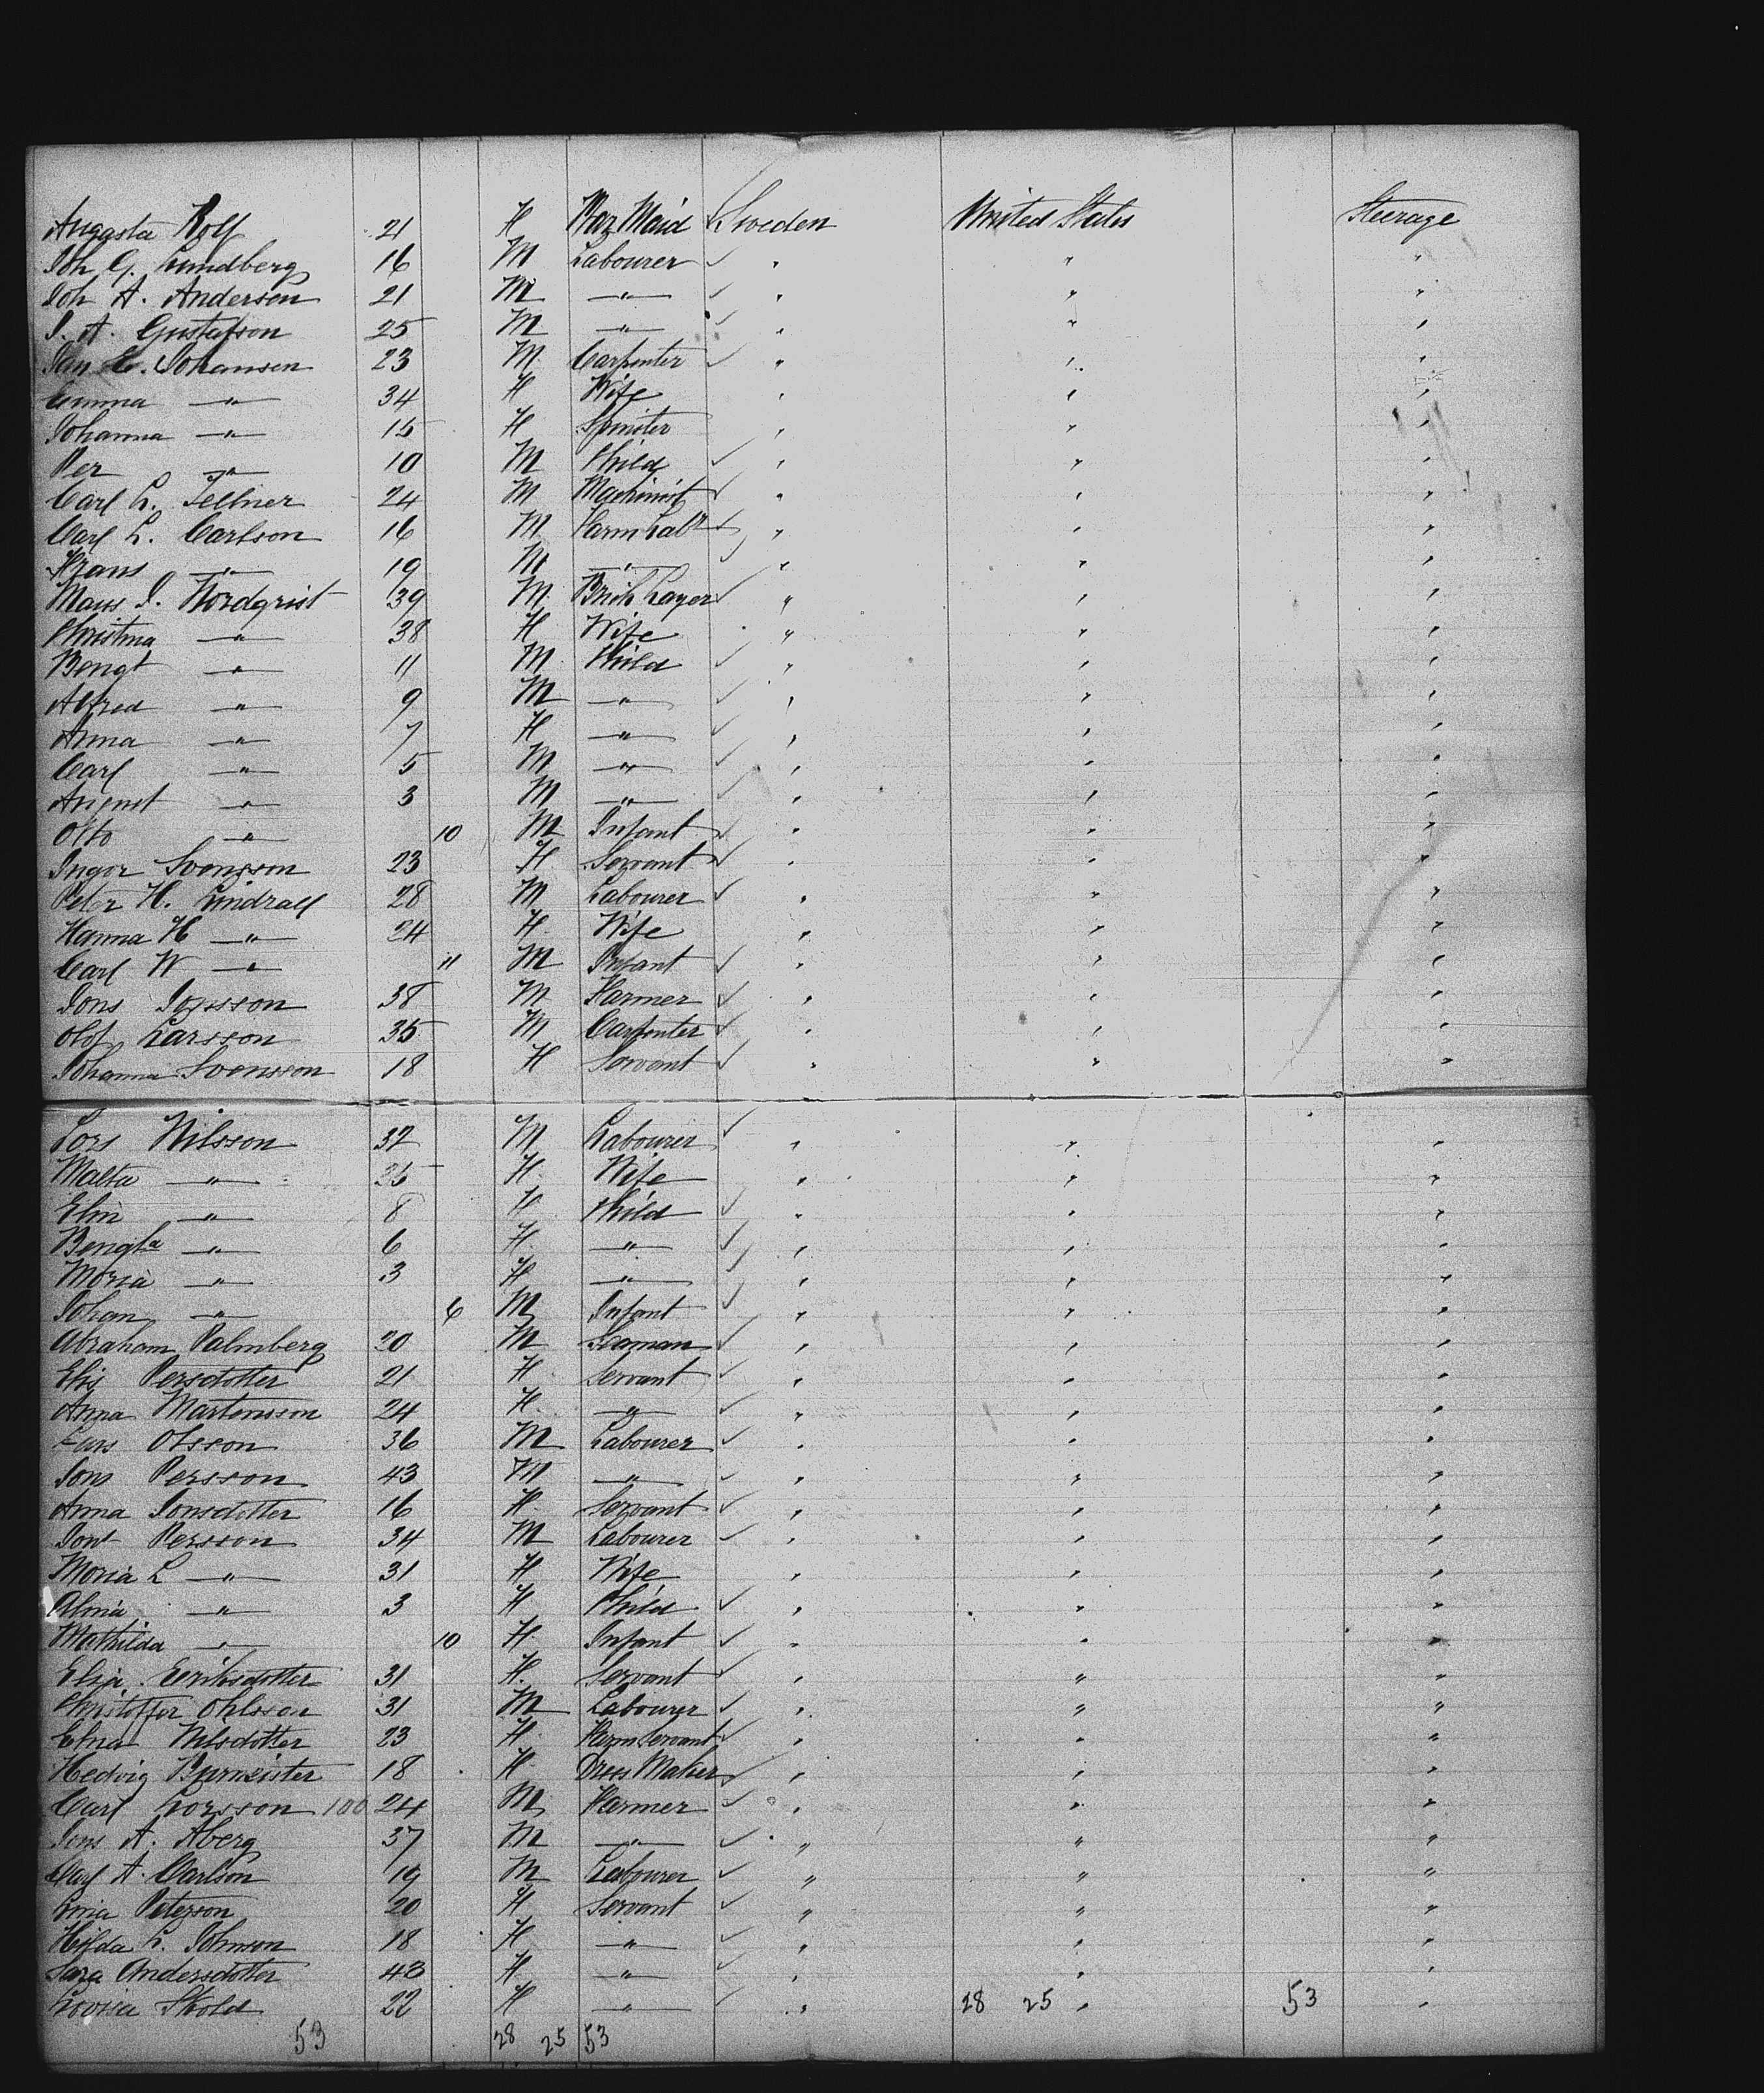 Augusta Rolf 21 F Bar Maid ✓ Sweden United States Steerage
Joh G. Lundberg 16 M Labourer ✓ " " "
Joh A. Andersen 21 M —"— ✓ " " "
J. A. Gustafson 25 M —"— ✓ " " "
Jan E. Johansen 23 M Carpenter ✓ " " "
Emma —"— 34 F Wife " " "
Johanna —"— 15 F Spinster " " "
Per —"— 10 M Child ✓ " " "
Carl L. Tellner 24 M Machinist ✓ " " "
Carl L. Carlson 16 M Farm Labr ✓ " " "
Frans —"— 19 M —"— ✓ " " "
Maus J. Nordqvist 39 M Brick Layer ✓ " " "
Christina —"— 38 F Wife " " "
Bengt —"— 11 M Child ✓ " " "
Alfred —"— 9 M —"— ✓ " " "
Anna —"— 7 F —"— ✓ " " "
Carl —"— 5 M —"— ✓ " " "
August —"— 3 M —"— ✓ " " "
Otto —"— 10 M Infant ✓ " " "
Inger Svensson 23 F Servant ✓ " " "
Peter H. Lindrall 28 M Labourer ✓ " " "
Hanna H —"— 24 F Wife " " "
Carl W —"— 11 M Infant ✓ " " "
Jons 38 M Farmer ✓ " " "
Olof Larsson 35 M Carpenter ✓ " " "
Johanna Svensson 18 F Servant ✓ " " "
Lars Nilsson 37 M Labourer ✓ " " "
Malta —"— 25 F Wife " " "
Elin —"— 8 F Child ✓ " " "
Bengta —"— 6 F —"— ✓ " " "
Maria —"— 3 F —"— ✓ " " "
Johan —"— 6 M Infant ✓ " " "
Abraham Palmberg 20 M Seaman ✓ " " "
Elis Persdotter 21 F Servant ✓ " " "
Anna Martensson 24 F —"— ✓ " " "
Lars Olsson 36 M Labourer ✓ " " "
Jons Persson 43 M —"— ✓ " " "
Anna Jonsdotter 16 F Servant ✓ " " "
Persson 34 M Labourer ✓ " " "
Maria L —"— 31 F Wife " " "
Alma —"— 3 F Child ✓ " " "
Mathilda —"— 10 F Infant ✓ " " "
Elsa Eriksdotter 31 F Servant ✓ " " "
Christoffer Ohlsson 31 M Labourer ✓ " " "
Elna Nilsdotter 23 F Farm Servant ✓ " " "
Hedvig Burmeister 18 F Dress Maker ✓ " " "
Carl Larsson 100 24 M Farmer ✓ " " "
Jons A. Aberg 37 M —"— ✓ " " "
Carl A. Carlson 19 M Labourer ✓ " " "
Lina Peterson 20 F Servant ✓ " " "
Hilda L. Johnson 18 F —"— ✓ " " "
Sara Andersdotter 43 F —"— ✓ " " "
Lovisa Skold 22 F —"— ✓ " 28 25 " 53 "
53 28 25 53